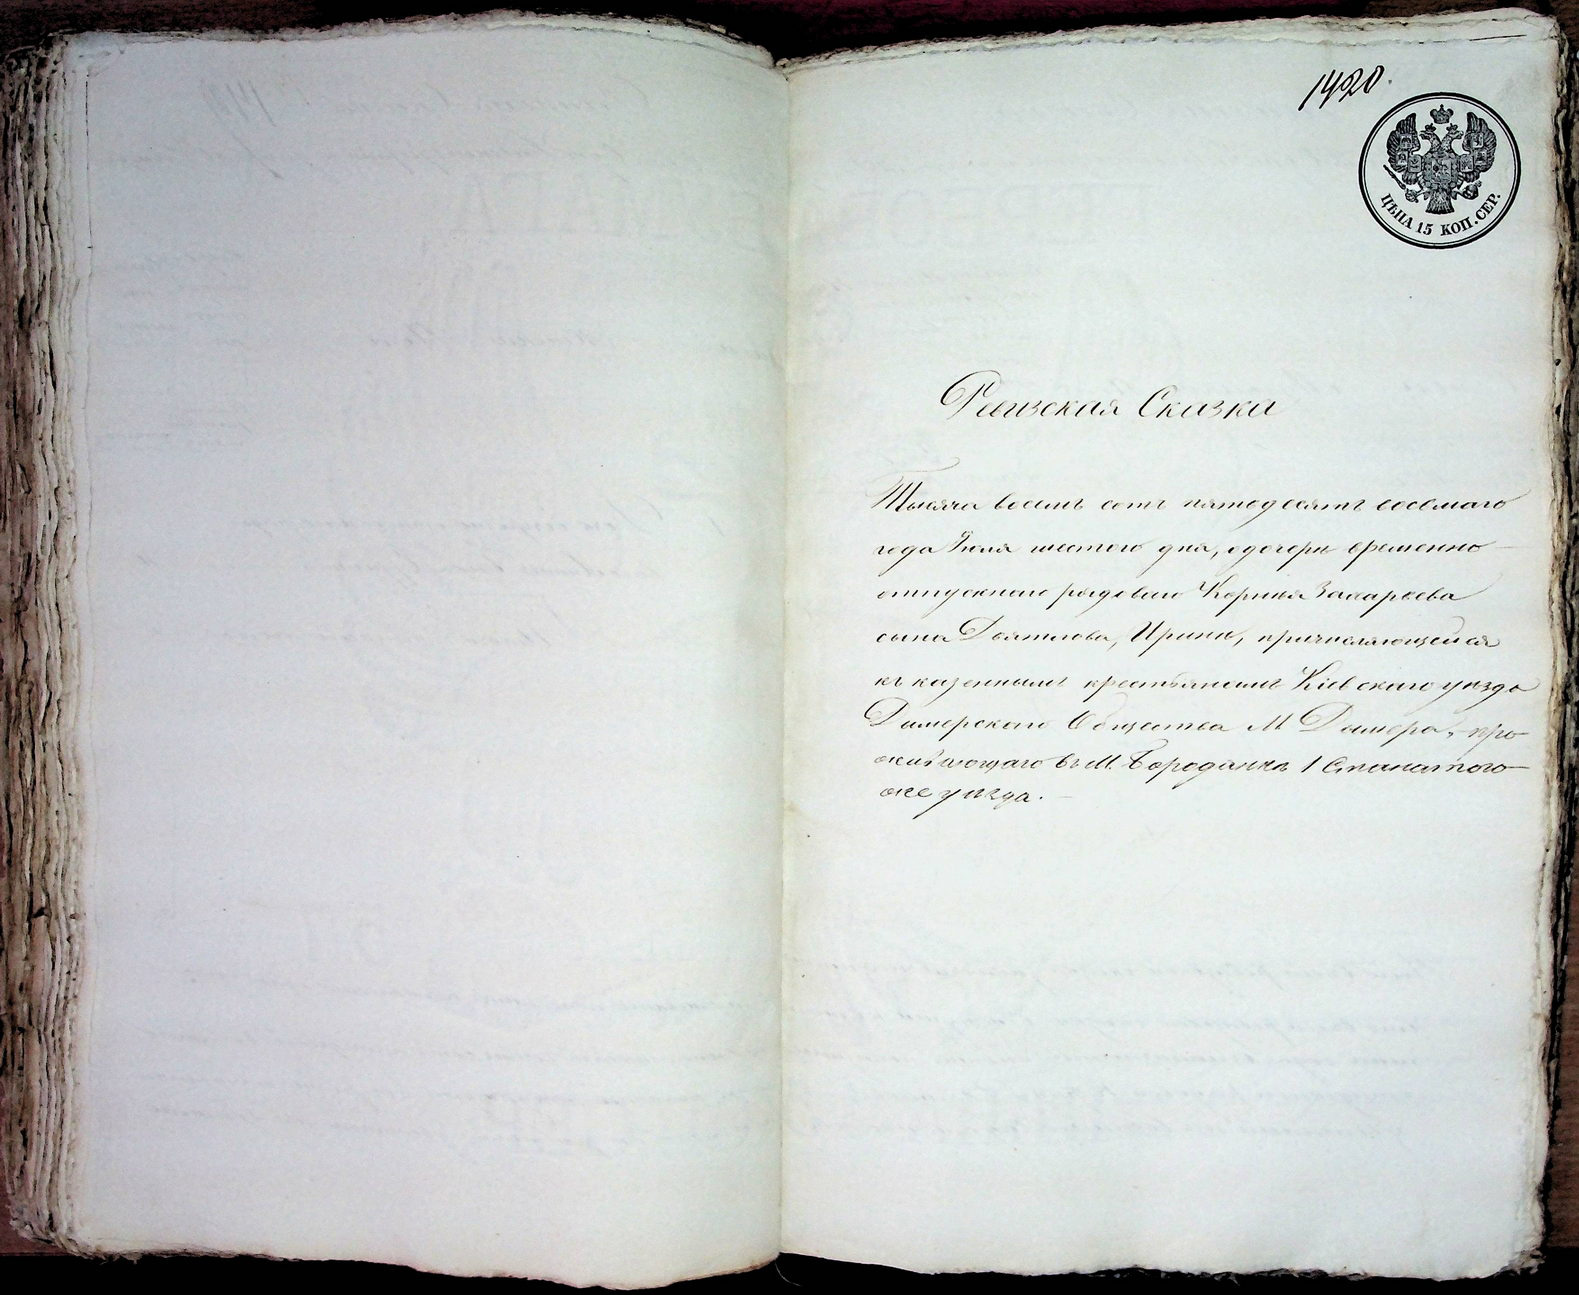 1420.
ЦѢНА 15 КОП. СЕР.
Ревизская Сказка
Тысяча восемь сотъ пятодесятъ восьмаго
года Июля шестого дня, о дочери временно
отпускного рядового Захарьева
сына Ирине, причисляющейся
къ казеннымъ крестьянамъ Кіевскаго уѣзда
Димерского Общества М Димера, про-
живающаго въ М. Бородянкѣ 1 Стана того
же уѣзда.